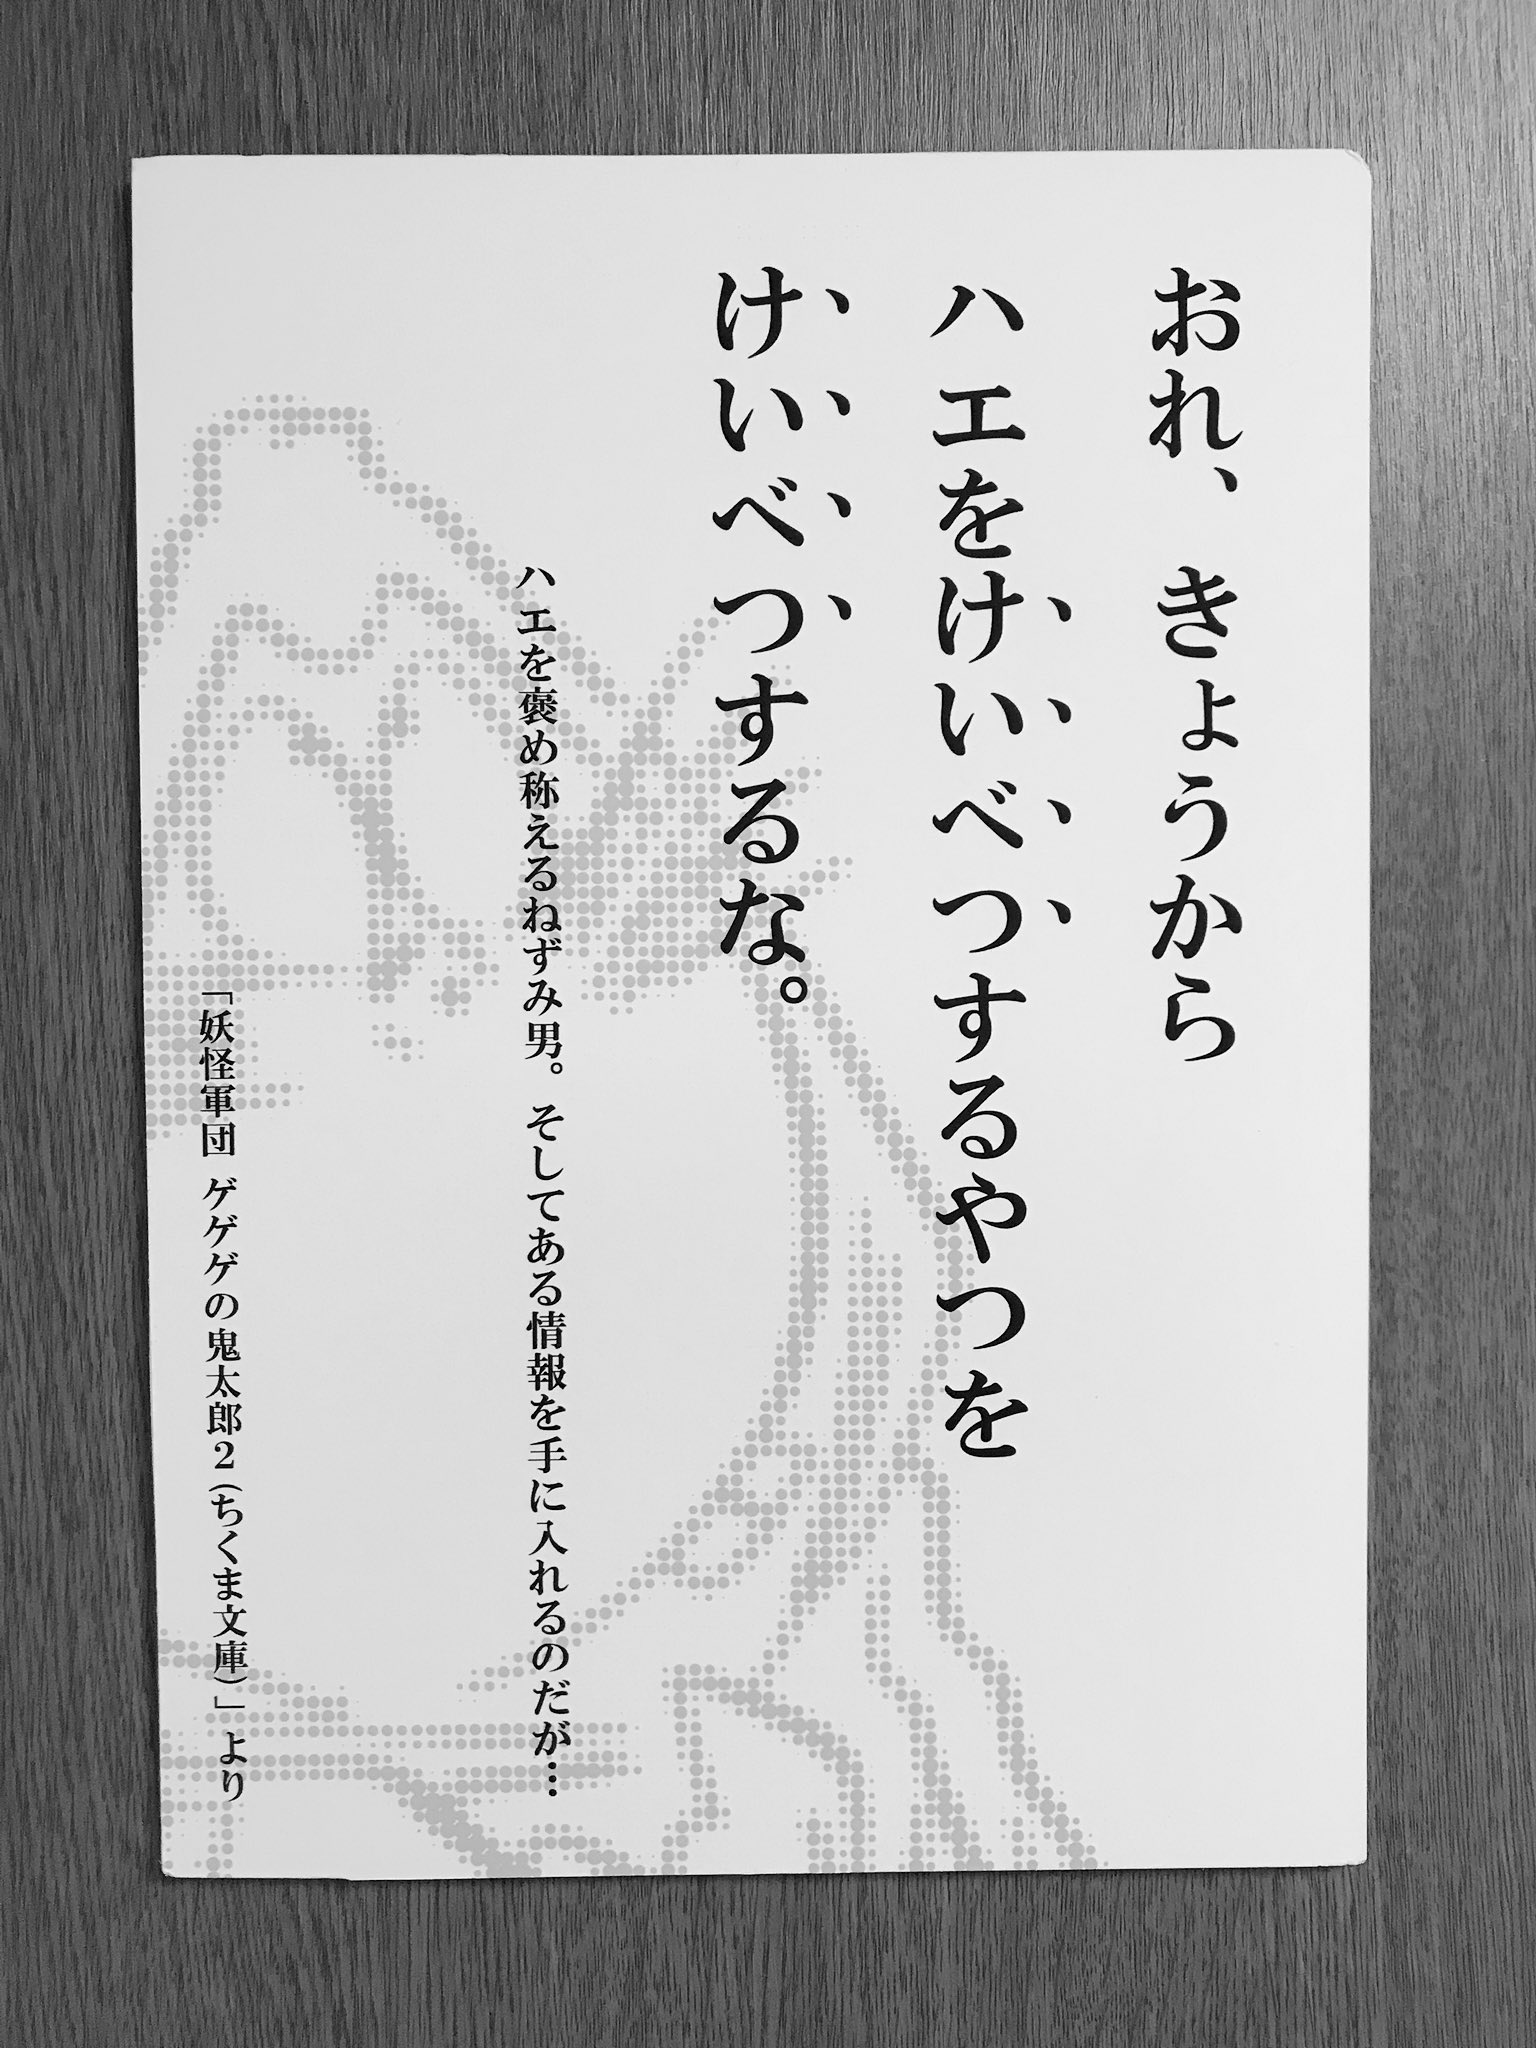 おれ、きょうから
ハエをけいべつするやつを
けいべつするな。
ハエを褒め称えるねずみ男。そしてある情報を手に入れるのだが…
「妖怪軍団 ゲゲゲの鬼太郎2(ちくま文庫)」より